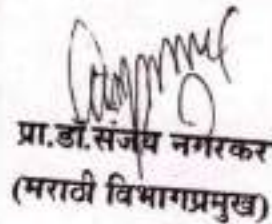 प्रा.डॉ.संजय नगरकर
(मराठी विभागप्रमुख)